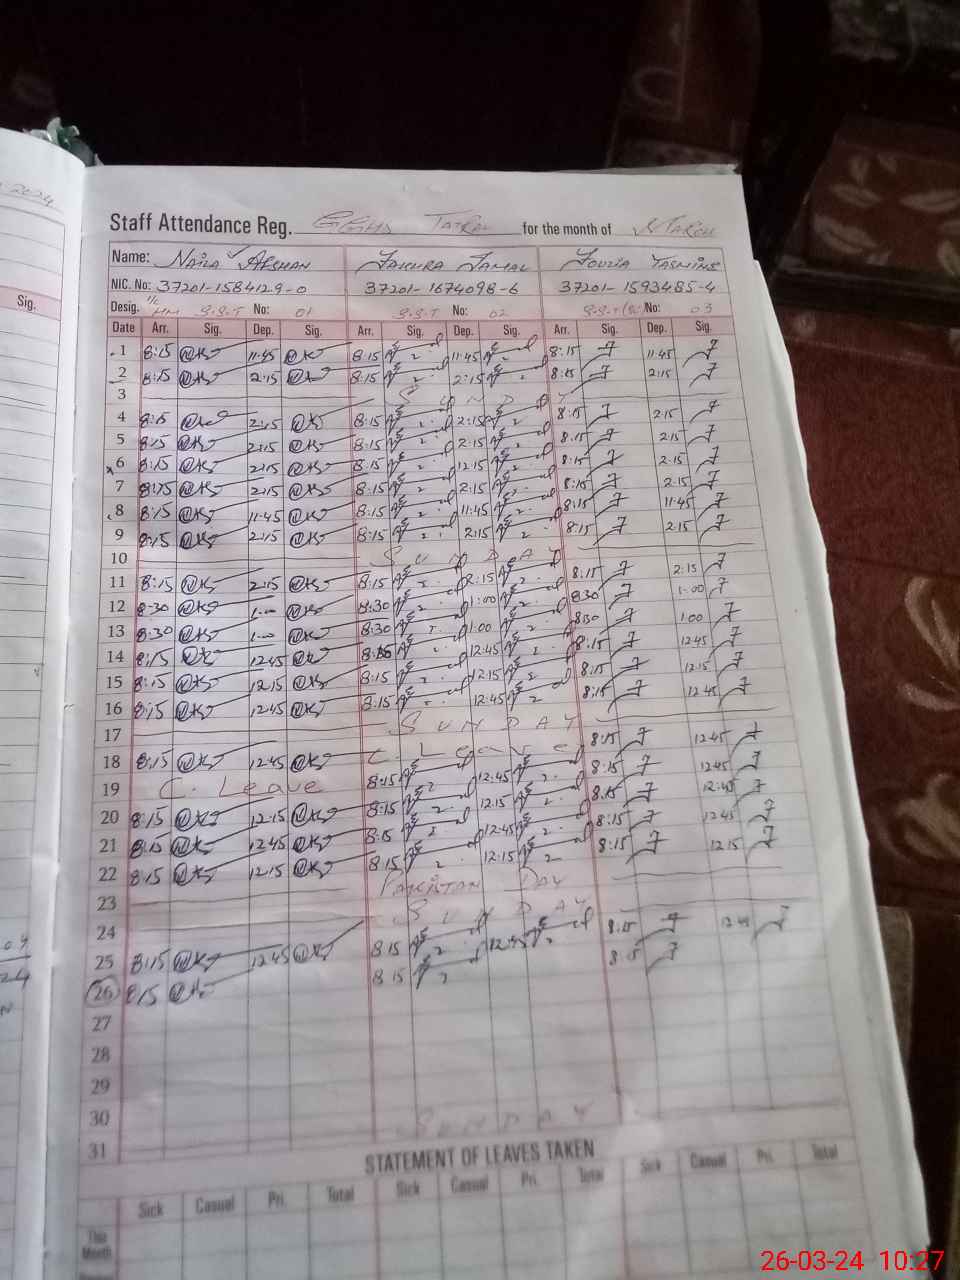 2024
Staff Attendance Reg. GGHS TATRAL for the month of MARCH
Name: NAILA AFSHAN FAKHRA JAMAL FOUZIA TASMINE
NIC. No: 37201-1584129-0 37201-1674098-6 37201-1593485-4
Desig. I/C HM S.S.T No: 01 S.S.T No: 02 S.S.T No: 03
Sig.
Date Arr. Sig. Dep. Sig. Arr. Sig. Dep. Sig. Arr. Sig. Dep. Sig.
1 8:15 11:45 8:15 11:45 8:15 11:45
2 8:15 2:15 8:15 2:15 8:15 2:15
3 SUNDAY
4 8:15 2:15 8:15 2:15 8:15 2:15
5 8:15 2:15 8:15 2:15 8:15 2:15
6 8:15 2:15 8:15 12:15 8:15 2:15
7 8:15 2:15 8:15 2:15 8:15 2:15
8 8:15 11:45 8:15 11:45 8:15 11:45
9 8:15 2:15 8:15 2:15 8:15 2:15
10 SUNDAY
11 8:15 2:15 8:15 2:15 8:15 2:15
12 8:30 1:00 8:30 1:00 8:30 1:00
13 8:30 1:00 8:30 1:00 8:30 1:00
14 8:15 12:45 8:15 12:45 8:15 12:45
15 8:15 12:15 8:15 12:15 8:15 12:15
16 8:15 12:45 8:15 12:45 8:15 12:45
17 SUNDAY
18 8:15 12:45 C. Leave 8:15 12:45
19 C. Leave 8:15 12:45 8:15 12:45
20 8:15 12:15 8:15 12:15 8:15 12:45
21 8:15 12:45 8:15 12:45 8:15 12:45
22 8:15 12:15 8:15 12:15 8:15 12:15
23 PAKISTAN DAY
24 SUNDAY
25 8:15 12:45 8:15 12:45 8:15 12:45
26 8:15 8:15 8:15
27
28
29
30
31 SUNDAY
STATEMENT OF LEAVES TAKEN
Sick Casual Pri. Total Sick Casual Pri. Total Sick Casual Pri. Total
This
Month
26-03-24 10:27